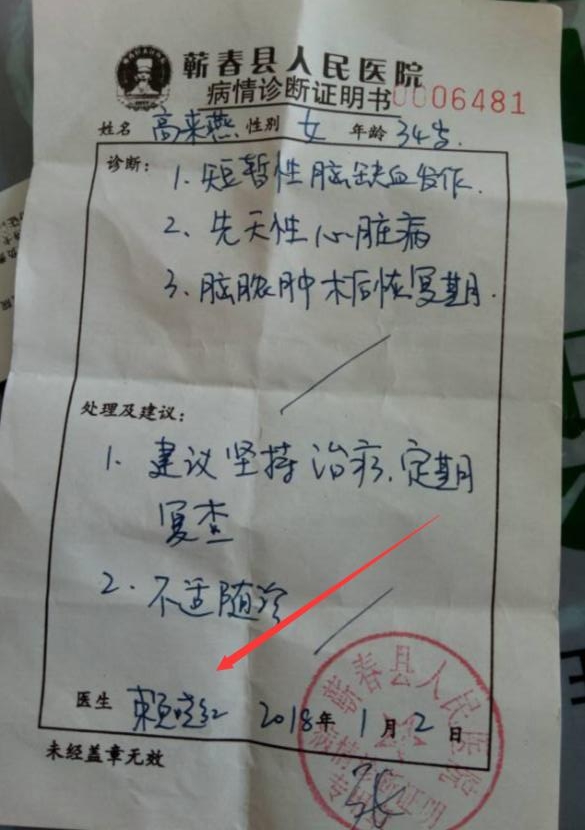 蕲春县人民医院
病情诊断证明书 0006481
姓名 高来燕 性别 女 年龄 34岁
诊断: 1. 短暂性脑缺血发作.
2. 先天性心脏病
3. 脑脓肿术后恢复期.
处理及建议:
1. 建议坚持治疗.定期
复查
2. 不适随诊
医生 赖晓红 2018年1月2日
未经盖章无效
蕲春县人民医院
病情诊断证明
专用